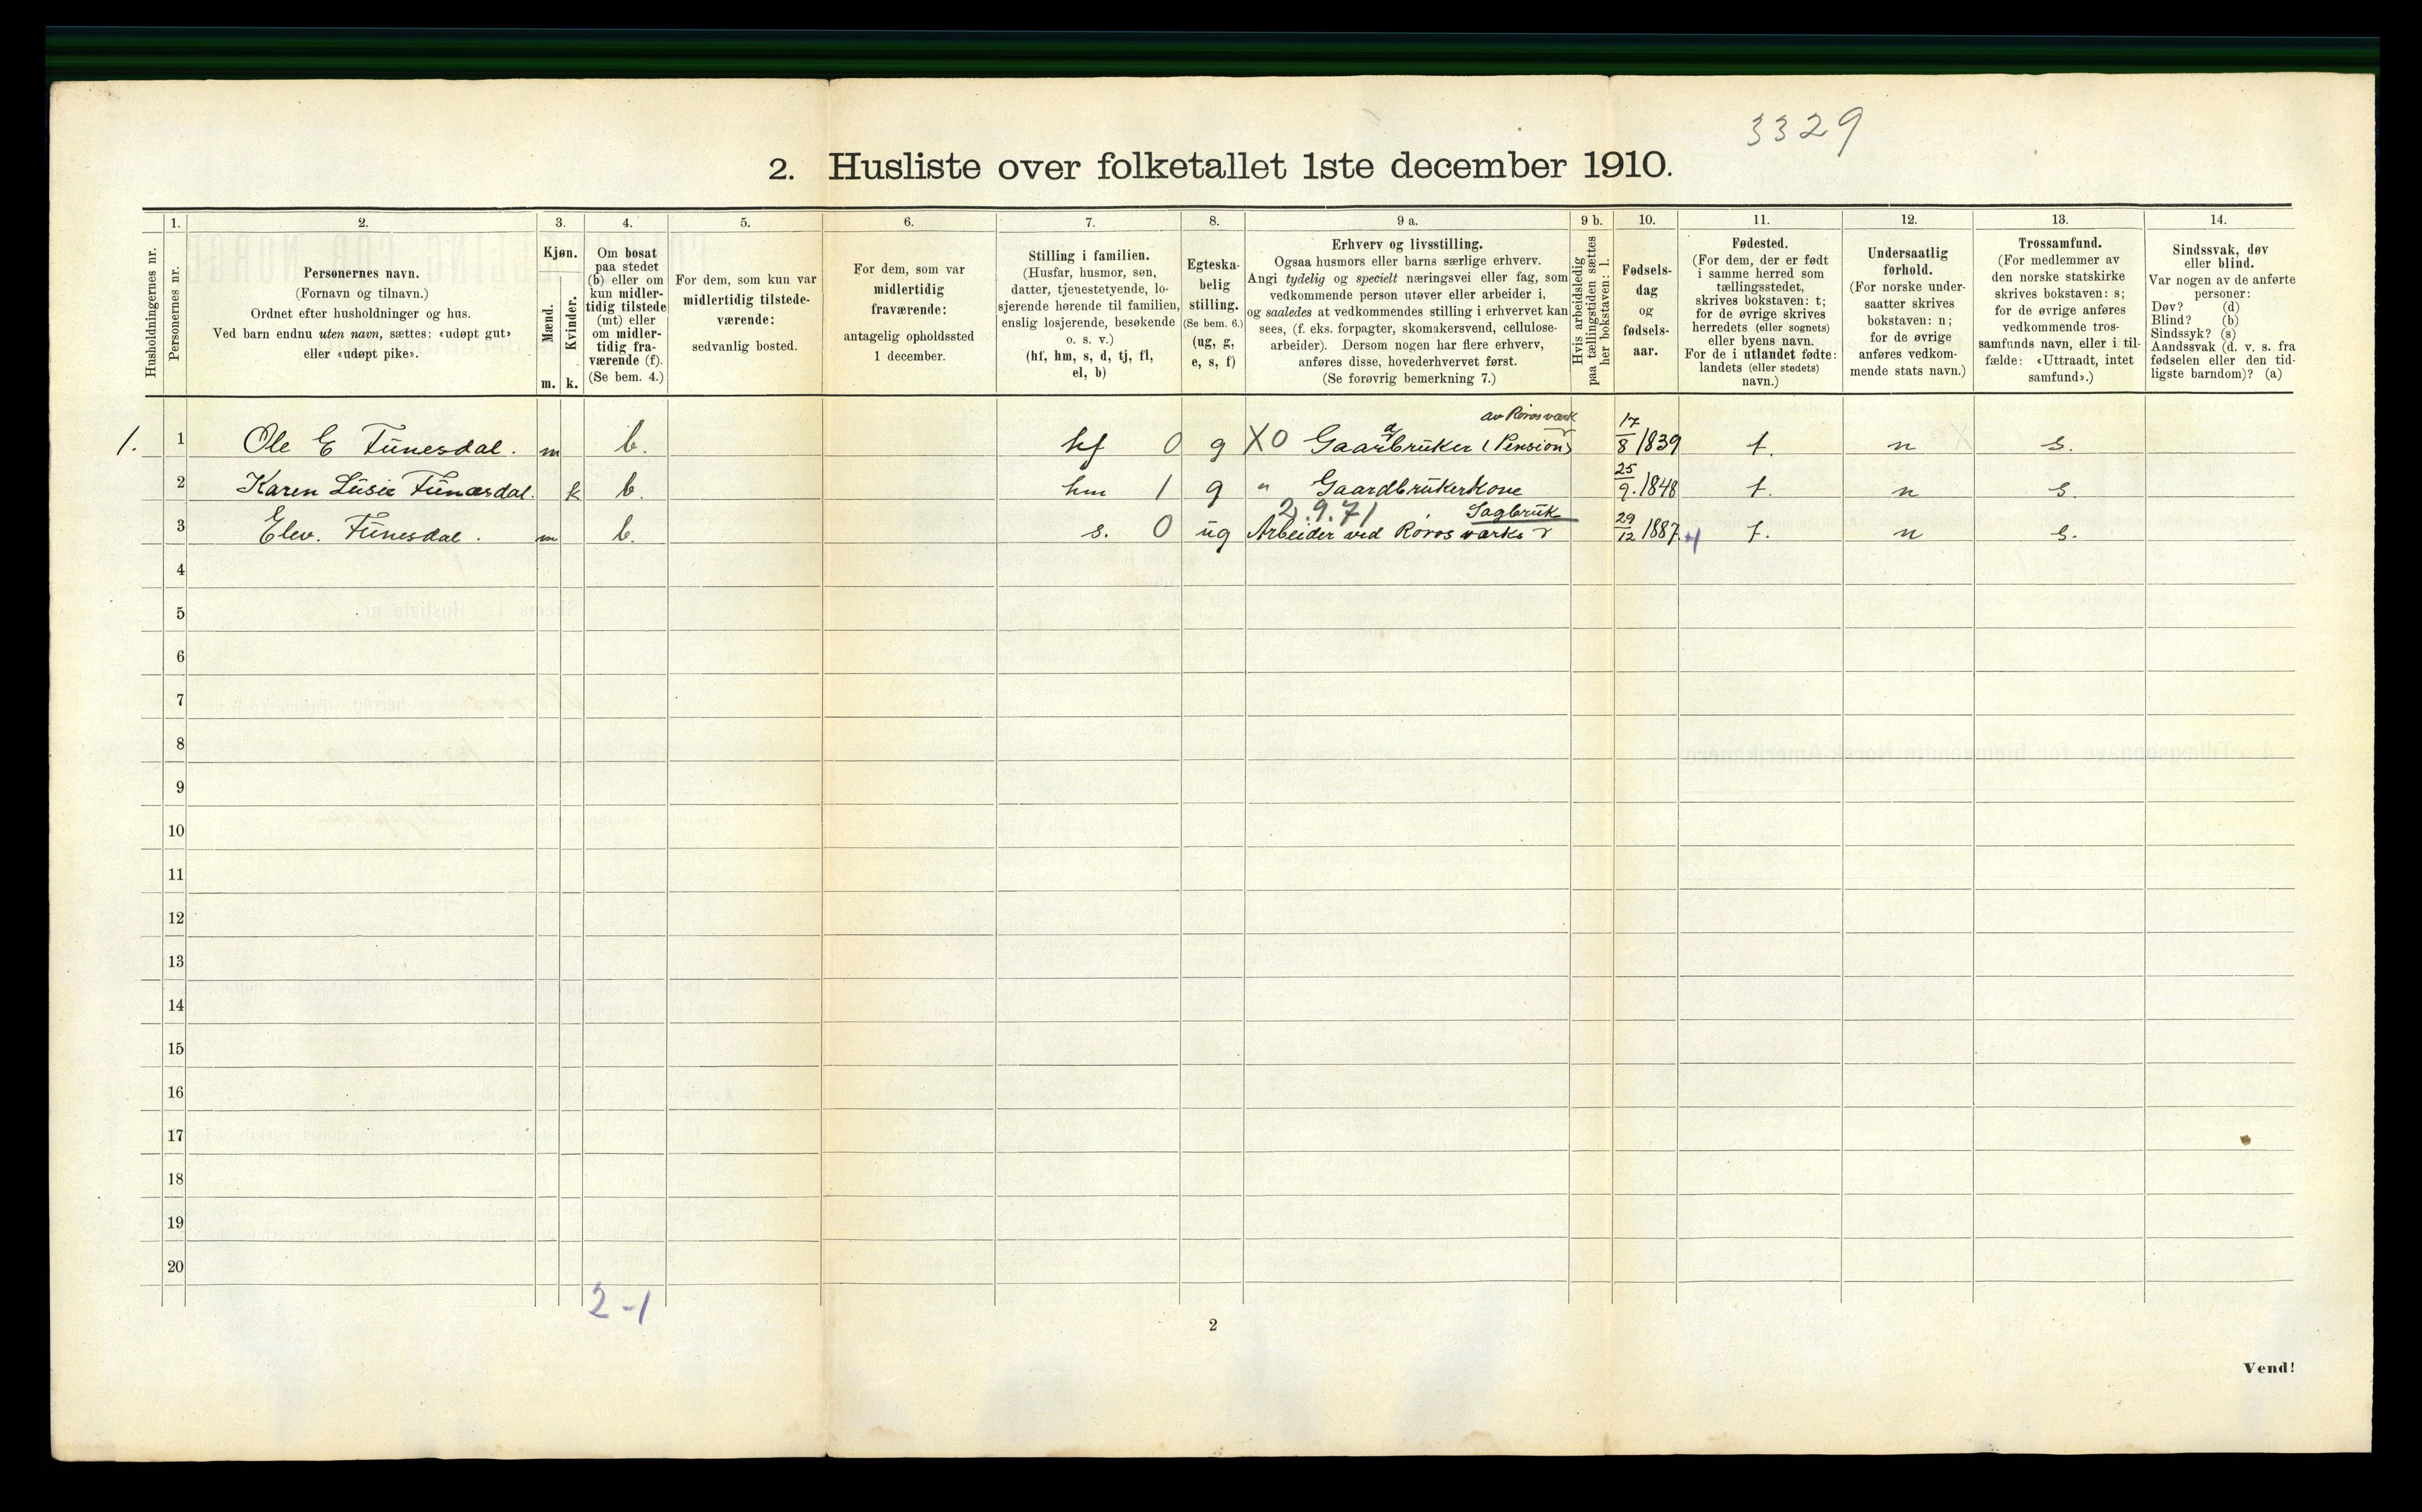 3329
2. Husliste over folketallet 1ste december 1910.
Husholdningernes nr.
1.
Personernes nr.
2.
Personernes navn.
(Fornavn og tilnavn.)
Ordnet efter husholdninger og hus.
Ved barn endnu uten navn, sættes: «udøpt gut»
eller «udøpt pike».
3.
Kjøn.
Mænd.
Kvinder.
m. k.
4.
Om bosat
paa stedet
(b) eller om
kun midler-
tidig tilstede
(mt) eller
om midler-
tidig fra-
værende (f).
(Se bem. 4.)
5.
For dem, som kun var
midlertidig tilstede-
værende:
sedvanlig bosted.
6.
For dem, som var
midlertidig
fraværende:
antagelig opholdssted
1 december.
7.
Stilling i familien.
(Husfar, husmor, søn,
datter, tjenestetyende, lo-
sjerende hørende til familien,
enslig losjerende, besøkende
o. s. v.)
(hf, hm, s, d, tj, fl,
el, b)
8.
Egteska-
belig
stilling.
(Se bem. 6.)
(ug, g,
e, s, f)
9 a.
Erhverv og livsstilling.
Ogsaa husmors eller barns særlige erhverv.
Angi tydelig og specielt næringsvei eller fag, som
vedkommende person utøver eller arbeider i,
og saaledes at vedkommendes stilling i erhvervet kan
sees, (f. eks. forpagter, skomakersvend, cellulose-
arbeider). Dersom nogen har flere erhverv,
anføres disse, hovederhvervet først.
(Se forøvrig bemerkning 7.)
9 b.
Hvis arbeidsledig
paa tællingstiden sættes
her bokstaven: l.
10.
Fødsels-
dag
og
fødsels-
aar.
11.
Fødested.
(For dem, der er født
i samme herred som
tællingsstedet,
skrives bokstaven: t;
for de øvrige skrives
herredets (eller sognets)
eller byens navn.
For de i utlandet fødte:
landets (eller stedets)
navn.)
12.
Undersaatlig
forhold.
(For norske under-
saatter skrives
bokstaven: n;
for de øvrige
anføres vedkom-
mende stats navn.)
13.
Trossamfund.
(For medlemmer av
den norske statskirke
skrives bokstaven: s;
for de øvrige anføres
vedkommende tros-
samfunds navn, eller i til-
fælde: «Uttraadt, intet
samfund».)
14.
Sindssvak, døv
eller blind.
Var nogen av de anførte
personer:
Døv? (d)
Blind? (b)
Sindssyk? (s)
Aandssvak (d. v. s. fra
fødselen eller den tid-
ligste barndom)? (a)
av Røros værk
1. 1 Ole E Funesdal. m b. hf 0 g X0 Gaardbruker (Pension) 17/8 1839 t. n s.
2 Karen Lusie Funesdal. k b. hm 1 g " Gaardbrukerkone 25/9. 1848 t. n s.
2.9.71 Sagbruk
3 Elev. Funesdal. m b. s. 0 ug Arbeider ved Røros værks 29/12 1887 t. n s.
4
5
6
7
8
9
10
11
12
13
14
15
16
17
18
19
20
2-1
2
Vend!